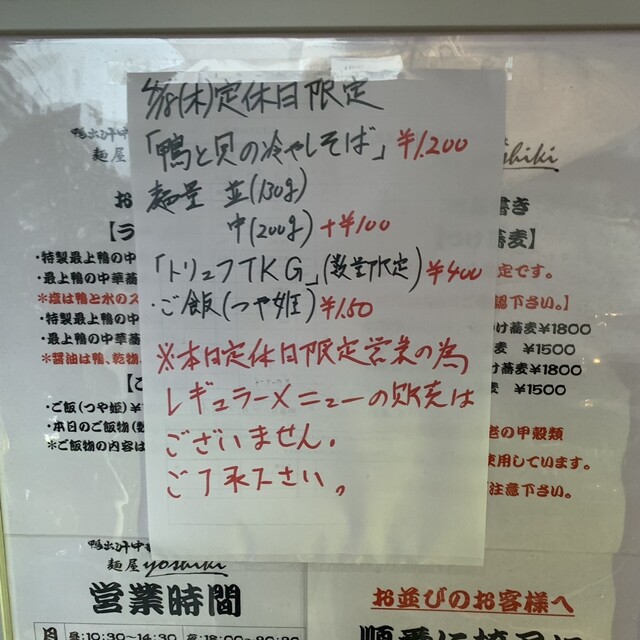 4/18(木)定休日限定
「鴨と貝の冷やしそば」¥1,200
麺量 並(130g)
中(200g)+¥100
「トリュフTKG」(数量限定)¥400
・ご飯(つや姫)¥150
※本日定休日限定営業の為
レギュラーメニューの販売は
ございません。
ご了承下さい。
鴨出汁中
麺屋
shiki
お
【ラ
・特製最上鴨の中
・最上鴨の中華蕎
※塩は鴨と水のス
・特製最上鴨の中
・最上鴨の中華
※醤油は鴨、乾物、
【ご
・ご飯(つや姫)¥
・本日のご飯物(数
※ご飯物の内容は
書き
【つけ蕎麦】
定です。
認下さい。】
つけ蕎麦¥1800
麦 ¥1500
け蕎麦¥1800
¥1500
老の甲殻類
使用しています。
注意下さい。
鴨出汁中
麺屋 yoshiki
営業時間
月 昼:10:30~14:30 夜:18:00~20:30
お並びのお客様へ